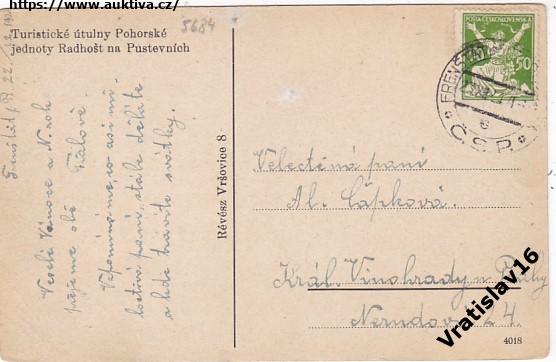 https://www.auktiva.cz/
5684
Turistické útulny Pohorské
jednoty Radhošť na Pustevních
Frenštát p. R. 22.
Veselé Vánoce a N. rok
přejeme obě
Vzpomínáme, co asi mi-
lostivá paní stále děláte
a kde trávíte svátky.
Révész Vršovice 8
POŠTA ČESKOSLOVENSKÁ
50
FRENŠTÁT
e
* Č.S.P. *
Velectěná paní
Al. Čápková.
Král. Vinohrady u Prahy
Nerudova 24.
4018
Vratislav16